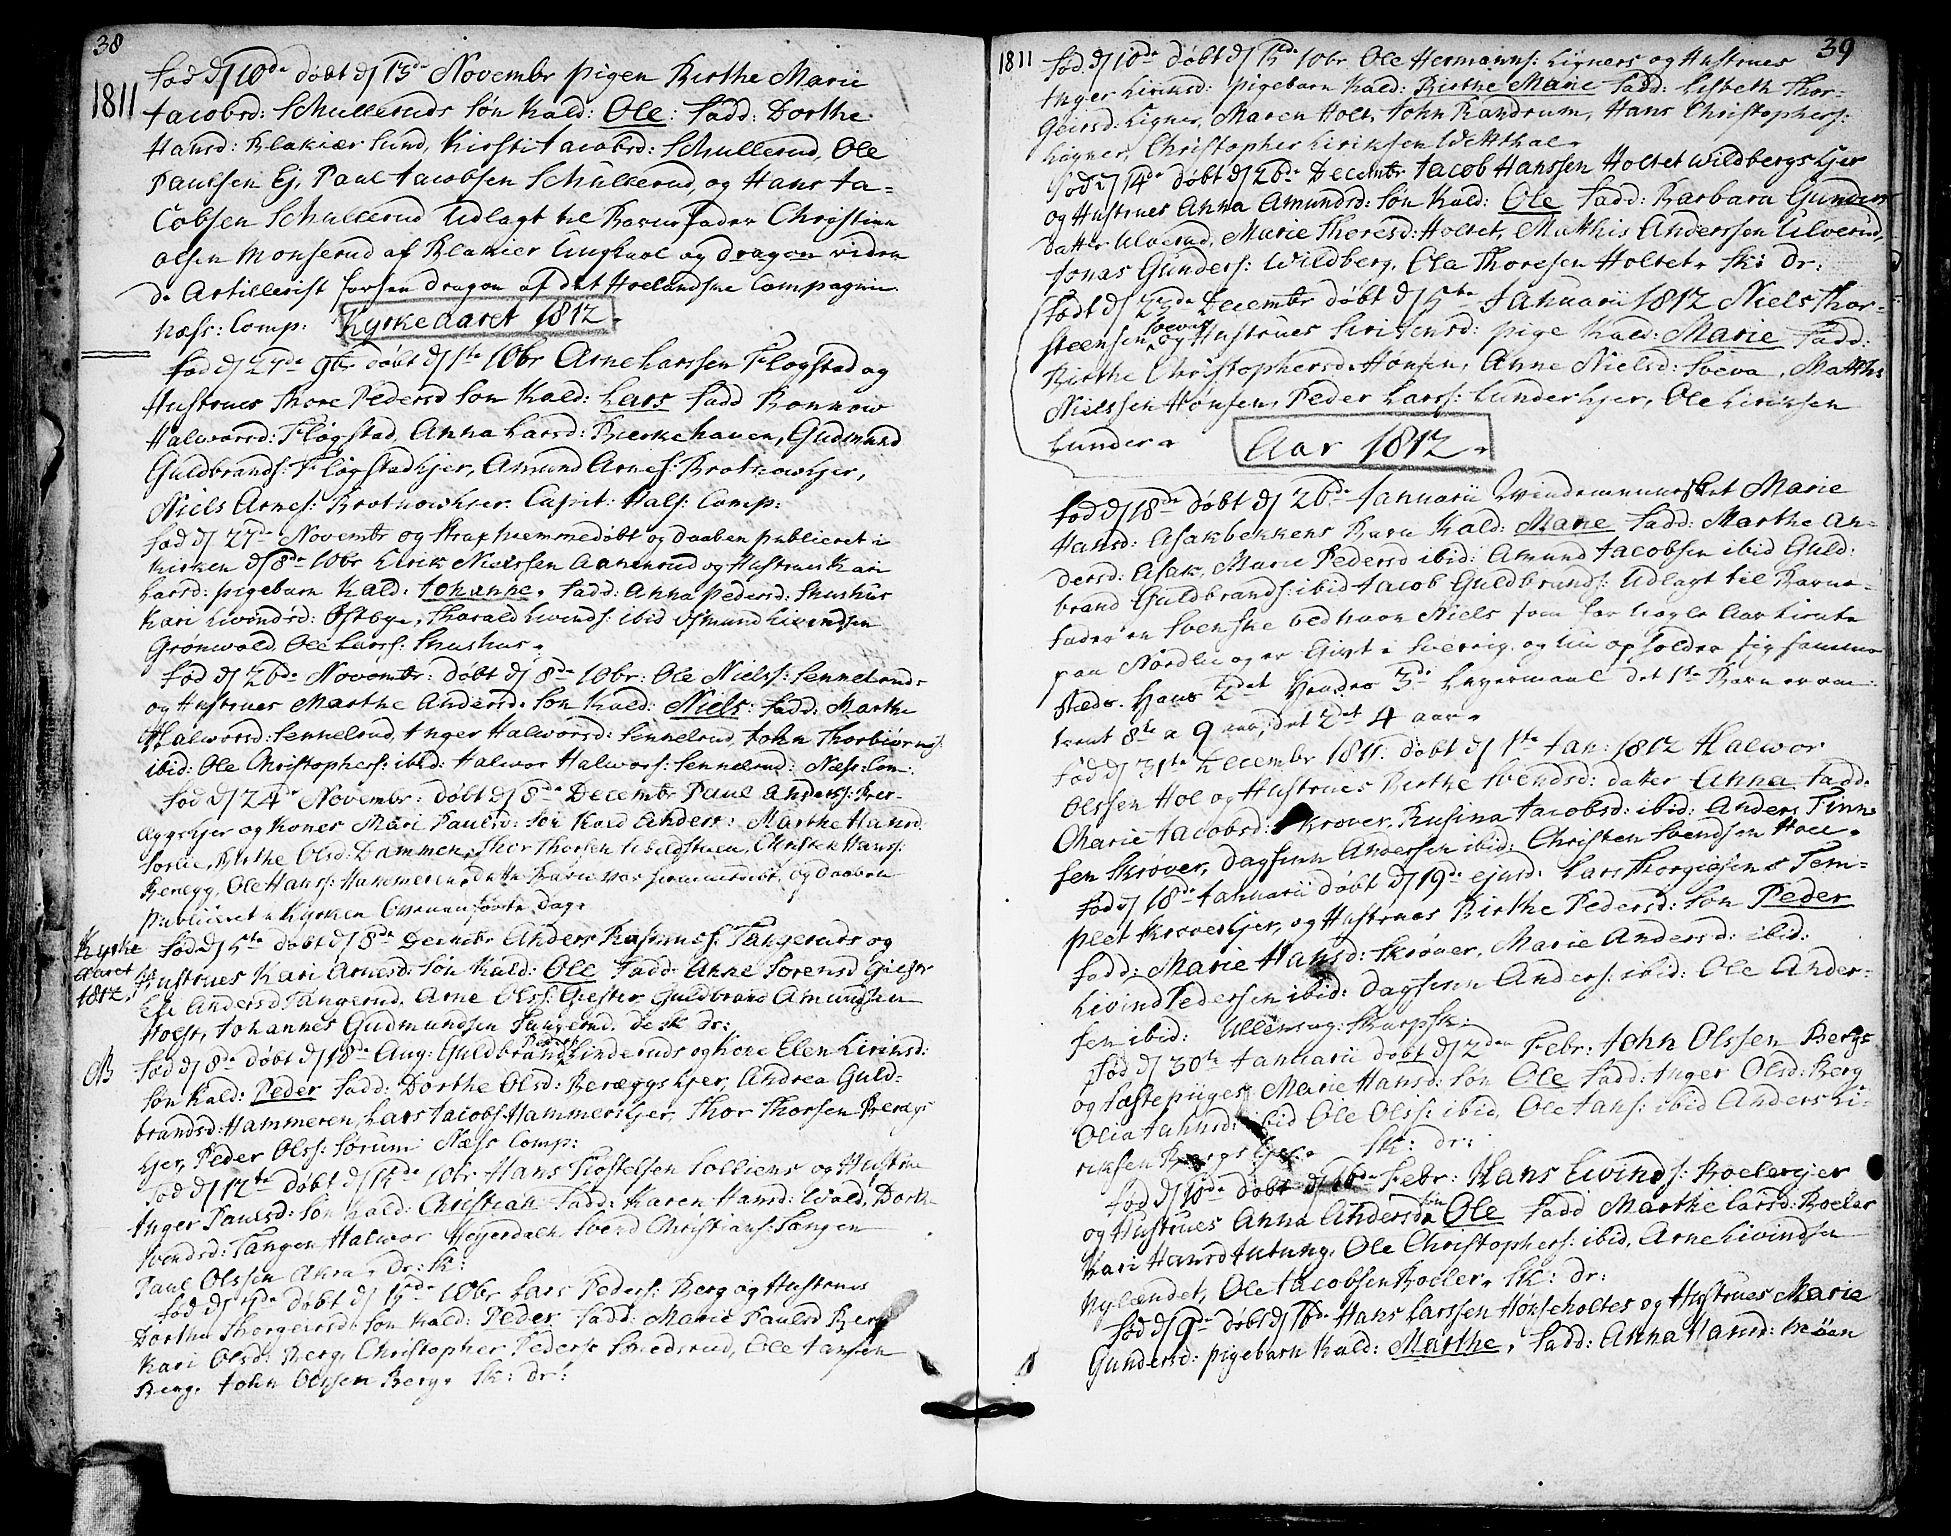 38
1811
fød d 10de døbt d 13de Novembr pigen Birthe Marie
Jacobsd: Schullerud Søn kald: Ole: fadd: Dorthe
Hansd: Blakiær Sund, Kirsti Jacobsd: Schullerud, Ole
Paulsen Ej, Paul Jacobsen Schullerud, og Hans Ja-
cobsen Schullerud Udlagt til Barnefader Christian
olsen Monserud af Blakier og dragon
Artillerist dragon af det Compagnie
Næss: Comp: Kyrkeaaret 1812.
fød d 27de 9br døbt d 1ste 10br Arne Larssen Fløgstad og
Hustrues Thore Pedersd Søn kald: Lars fadd Ronnow
Halworsd: Fløgstad, Anna Larsd: Bierkehauen, Gudmund
Guldbrands: Fløgstadejer, Amund Arnes: Brotnowejer,
Niels Arnes: Brotnowejer. Halfs: Comp:
fød d 27de Novembr og strax hiemmedøbt og daaben publiceret i
kirken d 8de 10br Eirik Nielssen Aamerud og Hustrues Kari
Larsd: pigebarn kald: Johanne. fadd: Anna Pedersd: Shushus
Kari Eivindsd: Østbye, Tharald Eivinds: ibid Osmund Eivindsen
Grønwold, Ole Larss: Shushus.
fød d 26de Novembr: døbt d 8de 10br: Ole Niels: Sennerud
og Hustrues Marthe Andersd. Søn kald: Niels: fadd: Marthe
Halworsd: Sennerud, Inger Halworsd: Sennerud, John Thorbiørns:
ibid: Ole Christophers: ibid: Halwor Halwors: Sennerud: Næss: Com:
fød d 24de Novembr: døbt d 8de Decembr Paul Anders: Ber-
eggejer og Kones Mari Paulsd: Søn kald Anders: Marthe Hansd
Birthe Olsd: Dammen, Thor Thorsen Christen Hanss:
Beregg, Ole Hanss: Hammeren, dette Barn var hiemmedøbt, og daaben
publiceret i Kyrken dag.
Kyrke
Aaret
1812.
fød d 5te døbt d 8de Decembr Anders Rasmus: Tangeruds og
Hustrues Kari Arnesd: Søn kald: Ole fadd: Anne Sørensd Giester
Else Andersd Tangerud, Arne Olss: Giester, Guldbrand Amundsen
Holst, Johannes Gudmundsen Tangerud. Sk dr:
NB
fød d 8de døbt d 18de Aug: Guldbrand Peders: Linderuds og kone Elen Eiriksd:
Søn kald: Peder fadd: Dorthe Olsd: Bereggsejer, Andrea Guld-
brandsd: Hammeren, Lars Jacobs: Hammersejer, Thor Thorsen Beregs
ejer, Peder Olss: Sørum: Næss Comp:
fød d 12te døbt d 15de 10br: Hans Kiostelsen Solliens og Hustrue
Inger Paulsd: Søn kald: Christian fadd: Karen Hansd: Wold, Dorthe
Svendsd: Tangen Halwor Heyerdalen Svend Christians: Tangen
Paul Olssen Akra. dr: Sk:
fød d døbt d 15de 10br Lars Peders: Berg og Hustrues
Dorthe Thorgeirsd: Søn kald: Peder fadd: Marie Paulsd Berg
Kari Olsd: Berg, Christopher Peders: Smedsrud, Ole Jansen
Berg. John Olssen Berg. Sk: dr:
39
1811
fød d 10de døbt d 15de 10br Ole Hermanns: Ligners og Hustrues
Inger Eiriksd: pigebarn kald: Birthe Marie fadd: Lisbeth Thor-
geirsd: Ligner, Maren Holt, John Randrum, Hans Christophers:
Ligner, Christopher Eiriksen Wetthal.
fød d 14de døbt d 26de Decembr Jacob Hanssen Holtet wildbergsejer
og Hustrues Anna Amundsd: Søn kald: Ole fadd: Barbara Gunders
datter Ulverud, Marie Thoresd: Holtet, Mathis Anderssen Ulverud,
Jonas Gunders: Wildberg, Ola Thoresen Holtet. Sk: dr:
født d 23de Decembr døbt d 5te Januarii 1812 Niels Thor-
steensen Soeva og Hustrues Eiriksd: pige kald: Marie fadd:
Birthe Christophersd: Honsen, Anne Nielsd: Soeva, Matth:
Nielssen Honsen, Peder Larss: Lunderejer, Ole Eiriksen
Lunder.
Aar 1812.
fød d 18de døbt d 26de Januarii qvindemennesket Marie
Hansd: Asakbekkens Barn kald: Marie fadd: Marthe An-
dersd: Asak, Marie Pedersd ibid: Amund Jacobsen ibid Guld:
brand Guldbrands: ibid Jacob Guldbrands: Udlagt til Barne-
fader en Svenske ved navn Niels som for nogle Aar tiente
paa Nordlie og er Givt i Sverrig. og nu opholder sig samme
steds. Hans 2det Hendes 3de Leyermaal det 1ste Barn er om-
trent 8te a 9 aar, det 2det 4 aar.
fød d 31te December 1811. døbt d 1ste Jan: 1812 Halwor
Olssen Hol og Hustrues Birthe Svendsd: datter Anna fadd:
Marie Jacobsd: Skrøver, Rusina Jacobsd: ibid: Anders Finn
sen Skrøver, Dagfinn Andersen ibid: Christen Svendsen Hoel.
fød d 18de Januarii døbt d 19de ejusd: Lars Thorgiosen Tem-
plet Skrøverejer, og Hustrues Birthe Pedersd: Søn Peder
fadd: Marie Hansd: Skrøver, Marie Andersd: ibid:
Eivind Pedersen ibid: Dagfinn Anders: ibid: Ole Ander-
sen ibid: Ullensag: Skarpsk:
fød d 30te Januarii døbt d 2den Febr: John Olssen Bergs
og fæstepiges Marie Hansd: Søn Ole fadd: Inger Olsd: Berg
Olia Jahnsd: ibid Ole Olss: ibid, Ole Jans: ibid Anders Ei-
riksen Bergsejer. Sk: dr:
fød d 10de døbt d 16de Febr: Hans Eivinds: Boelerejer
og Hustrues Anna Andersd: Søn Ole fadd Marthe Larsd: Boeler
Kari Hansd Jutung, Ole Christophers: ibid, Arne Eivindsen
Nylændet, Ole Jacobsen Boeler. Sk: dr:
fød d 9de døbt d 16de Hans Larssen Hønseholtes og Hustrues Marie
Gundersd: pigebarn kald: Marthe. fadd: Anna Hansd: Moen